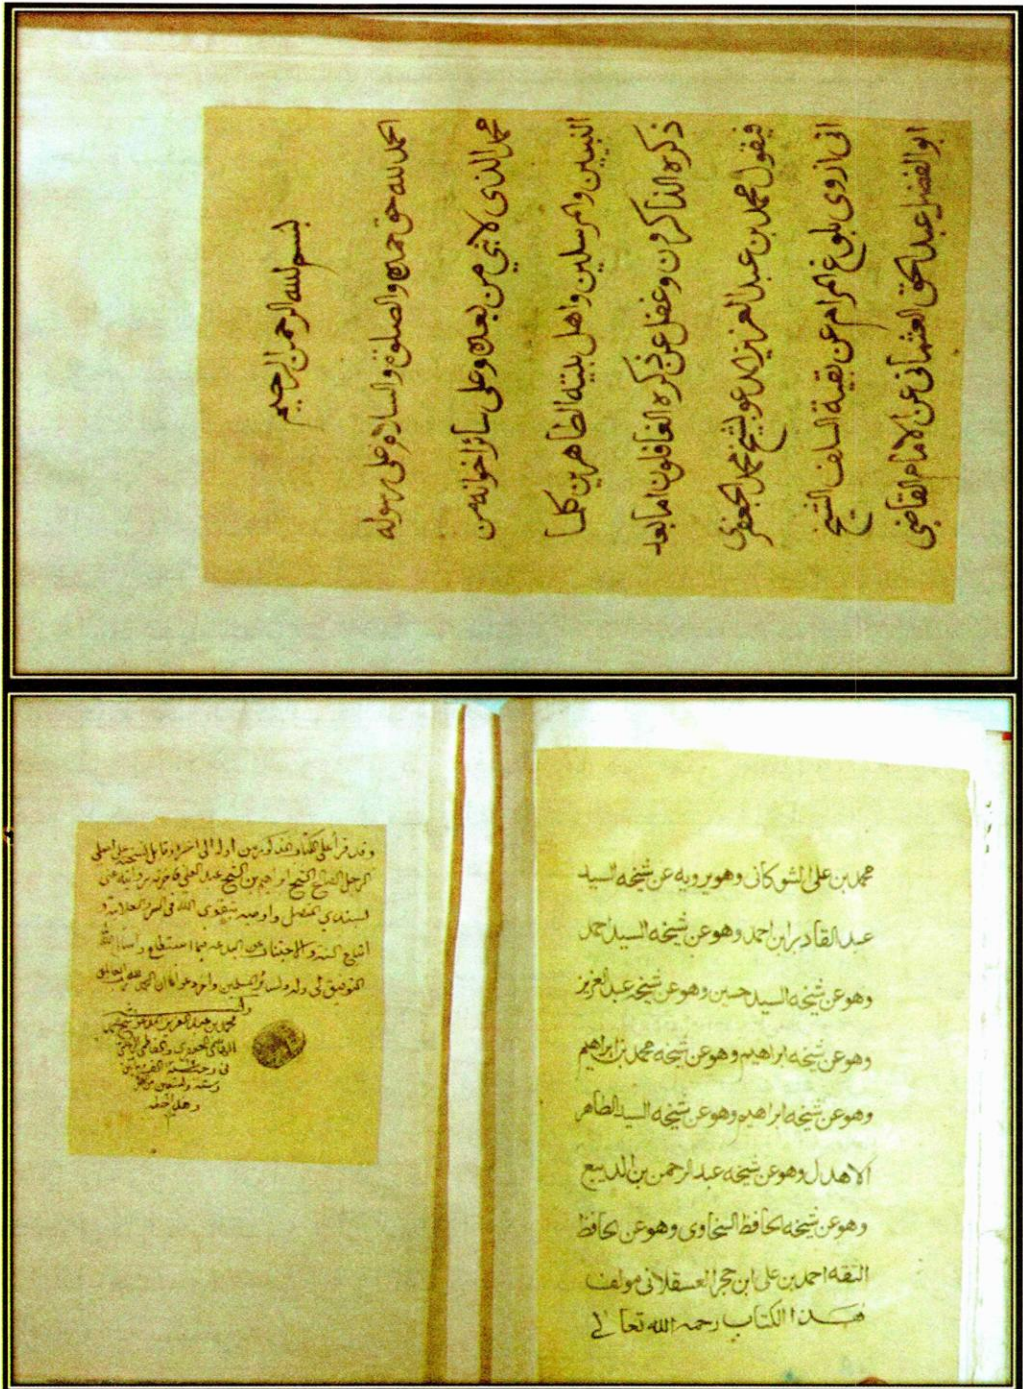 بسم لله الرحمن الرحيم
الحمد لله حق حمده والصلوة والسلام على رسوله
محمد الذى لا نبي من بعده وعلى سائر اخوانه من
النبيين والمرسلين واهل بيته الطاهرين كلما
ذكره الذاكرون وغفل عن ذكره الغافلون اما بعد
فيقول محمد بن عبد العزيز المدعو بشيخ محمد الجعفرى
انى اروى بلوغ المرام عن بقية السلف الشيخ
ابو الفضل عبد الحق العثمانى عن الامام القاضى
محمد بن على الشوكانى وهو يرويه عن شيخه السيد
عبد القادر ابن احمد وهو عن شيخه السيد احمد
وهو عن شيخه السيد حسين وهو عن شيخه عبد العزيز
وهو عن شيخه ابراهيم وهو عن شيخه محمد بن ابراهيم
وهو عن شيخه ابراهيم وهو عن شيخه السيد الطاهر
الاهدل وهو عن شيخه عبد الرحمن بن الديبع
وهو عن شيخه الحافظ السخاوى وهو عن الحافظ
الثقه احمد بن على ابن حجر العسقلانى مولف
هذا الكتاب رحمه الله تعالى
وقد قرأ على هذا من اوله الى اخره
الرجل الصالح الشيخ ابراهيم بن الشيخ عبد العلى
بسندي المتصل واوصيه بتقوى الله فى السر والعلانية و
اتباع السنة والاجتناب عن البدعة ما استطاع واسأل الله
التوفيق لى وله ولسائر المسلمين
محمد بن عبد العزيز المدعو شيخ محمد